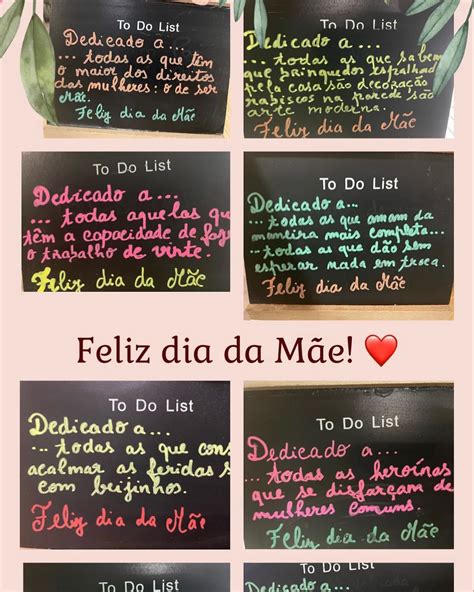 To Do List
Dedicado a...
... todas as que têm
o maior dos direitos
das mulheres: o de ser
Mãe.
Feliz dia da Mãe
To Do List
Dedicado a...
... todas as que sabem
que brinquedos espalhad
pela casa são decoração
rabiscos na parede são
arte moderna.
Feliz dia da Mãe
To Do List
Dedicado a...
... todas aquelas que
têm a capacidade de faze
o trabalho de vinte.
Feliz dia da Mãe
To Do List
Dedicado a...
... todas as que amam da
maneira mais completa...
... todas as que dão sem
esperar nada em troca.
Feliz dia da Mãe
Feliz dia da Mãe! ❤️
To Do List
Dedicado a...
... todas as que cons
acalmar as feridas s
com beijinhos.
Feliz dia da Mãe
To Do List
Dedicado a...
... todas as heroínas
que se disfarçam de
mulheres comuns.
Feliz dia da Mãe
To Do List
To Do List
Dedicado a...